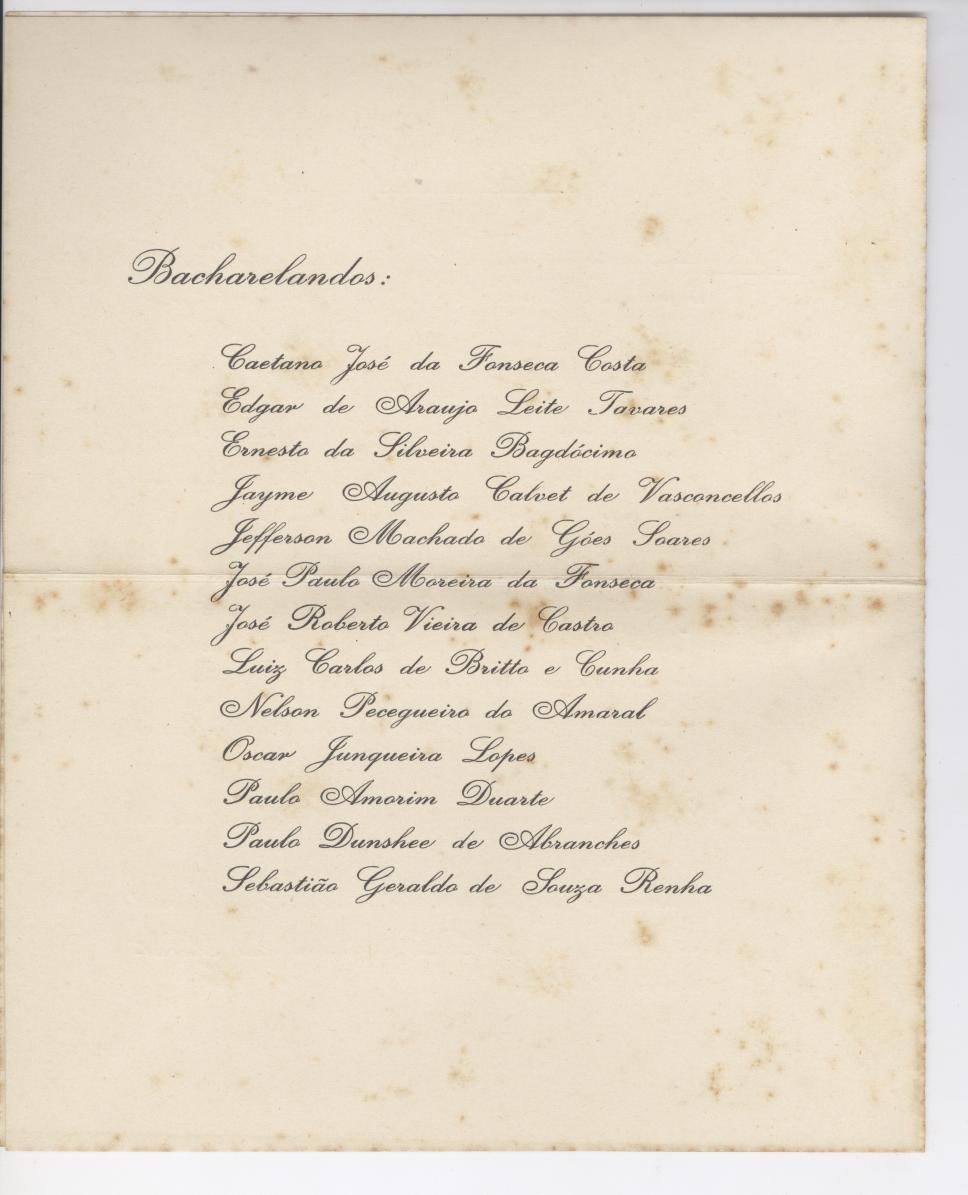 Bacharelandos:
Caetano José da Fonseca Costa
Edgar de Araujo Leite Tavares
Ernesto da Silveira Bagdócimo
Jayme Augusto Calvet de Vasconcellos
Jefferson Machado de Góes Soares
José Paulo Moreira da Fonseca
José Roberto Vieira de Castro
Luiz Carlos de Britto e Cunha
Nelson Pecegueiro do Amaral
Oscar Junqueira Lopes
Paulo Amorim Duarte
Paulo Dunshee de Abranches
Sebastião Geraldo de Souza Renha